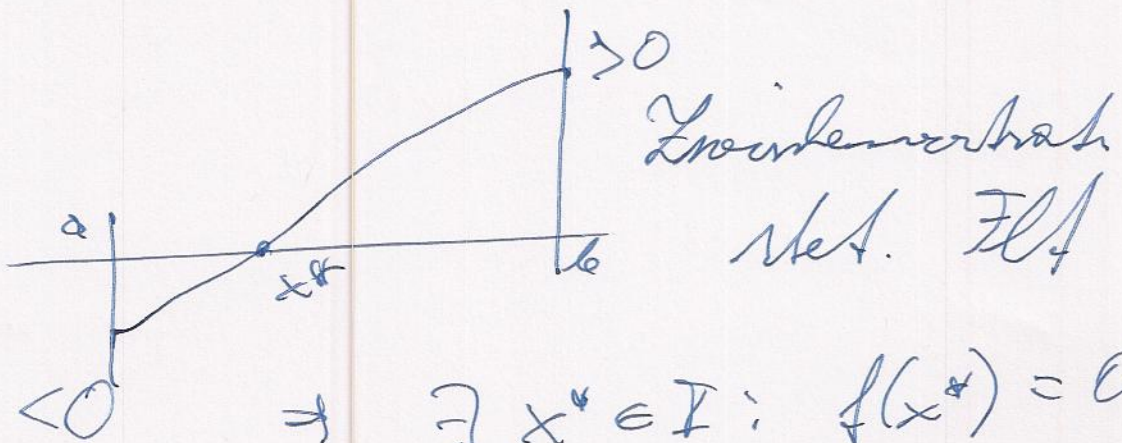 >0
Zwischenwertsatz
a
stet. Fkt
x* b
<0 ⇒ ∃ x* ∈ I : f(x*) = 0